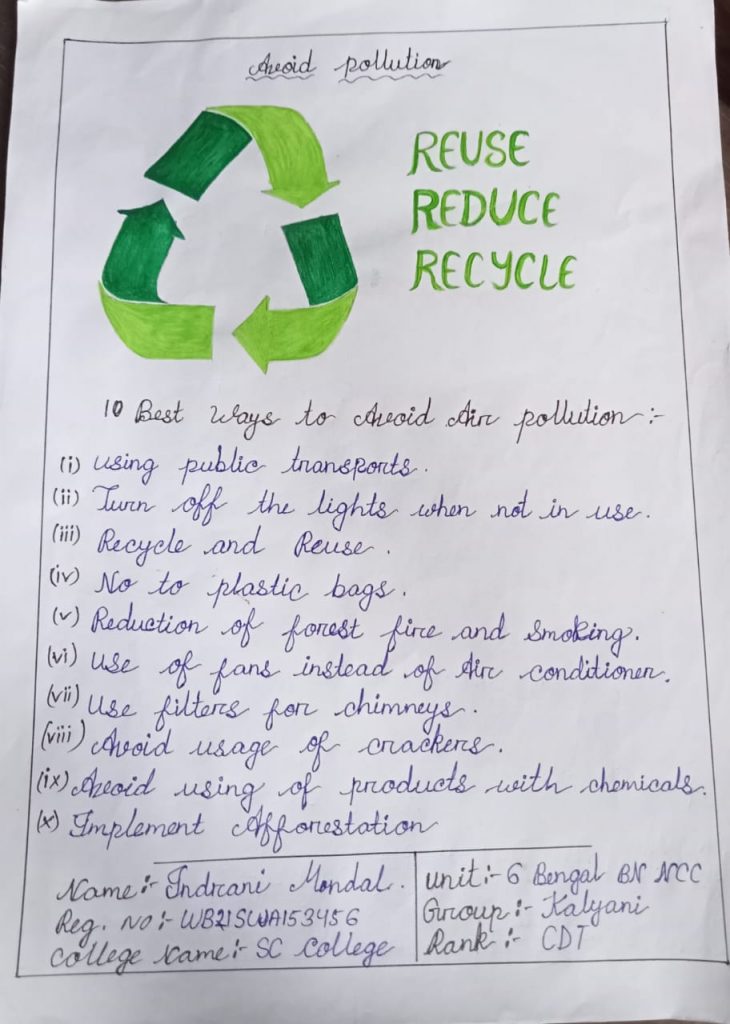 Avoid pollution
REUSE
REDUCE
RECYCLE
10 Best Ways to Avoid Air pollution:-
(i) Using public transports.
(ii) Turn off the lights when not in use.
(iii) Recycle and Reuse.
(iv) No to plastic bags.
(v) Reduction of forest fire and smoking.
(vi) Use of fans instead of Air conditioner.
(vii) Use filters for chimneys.
(viii) Avoid usage of crackers.
(ix) Avoid using of products with chemicals.
(x) Implement Afforestation
Name:- Indrani Mondal.
Reg. No:- WB21SWA153456
College Name:- SC College
Unit:- 6 Bengal BN NCC
Group:- Kalyani
Rank:- CDT